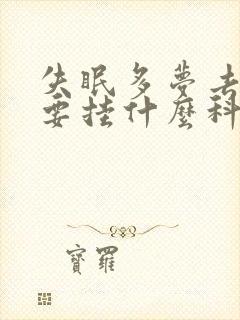 失眠多夢去
要挂什麼科
寶羅